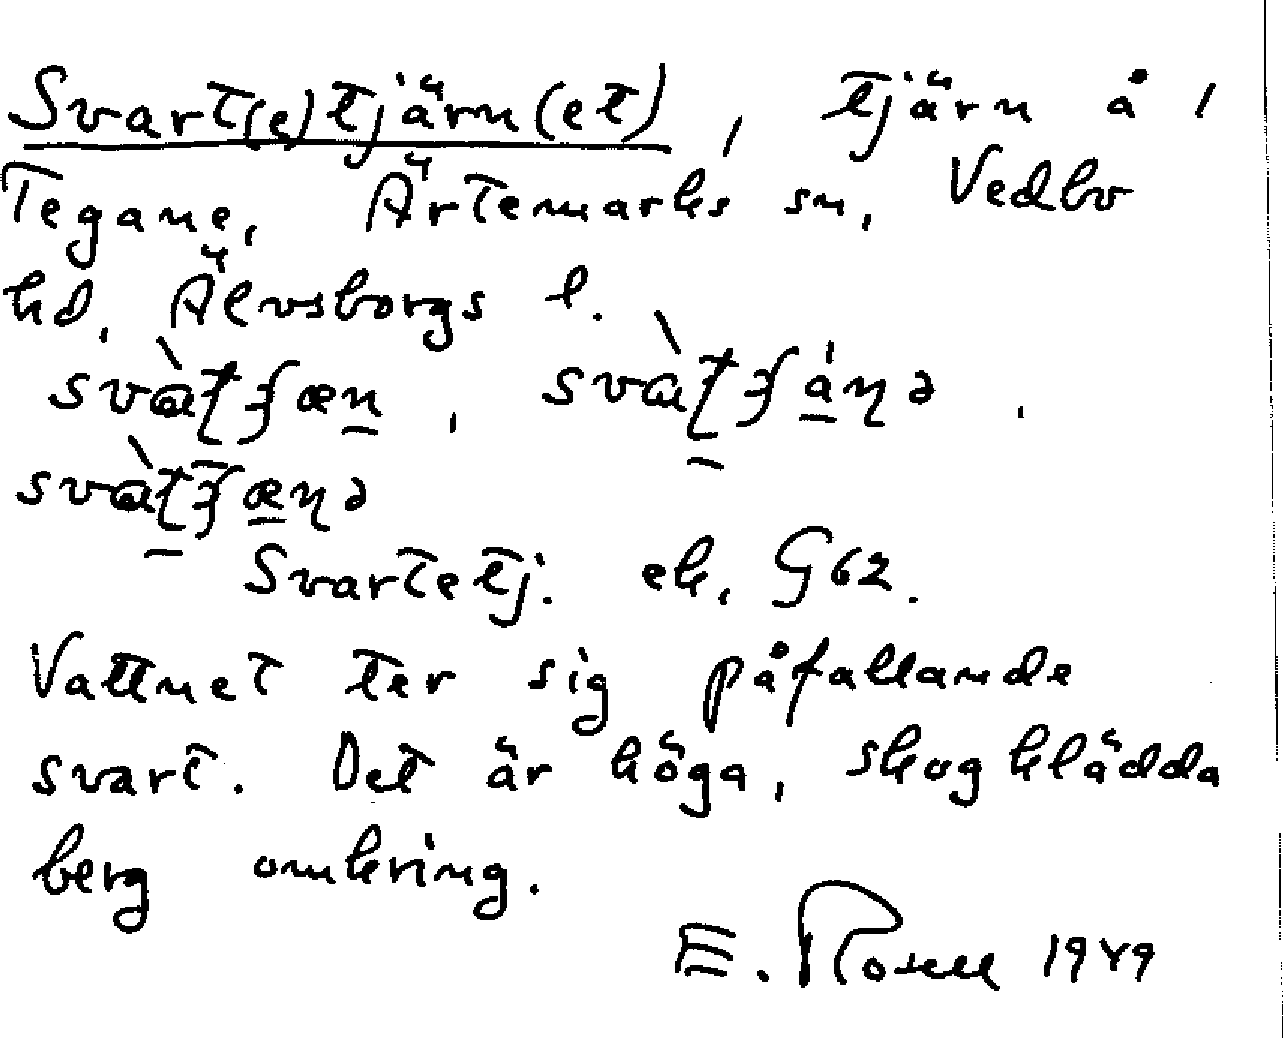 Svart(e)tjärn(et), tjärn å 1
Tegane, Ärtemarks sn, Vedbo
hd, Älvsborgs l.
Svartetj. ek. G62.
Vattnet ter sig påfallande
svart. Det är höga, skogklädda
berg omkring.
E. Rosell 1949